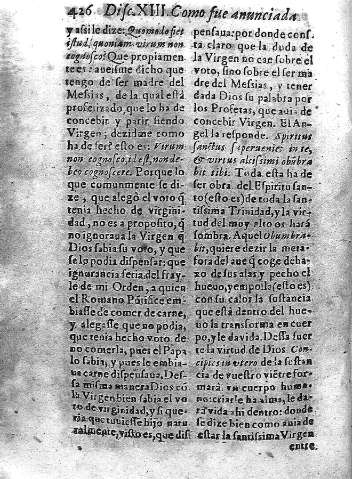 426 Disc. XIII Como fue anunciada
y assi le dize: Quomodo fiet
istud, quoniam virum non
cognosco? Que propiamen
te es: aueisme dicho que
tengo de ser madre del
Mesias, de la qual està
profetizado que lo ha de
concebir y parir siendo
Virgen; dezidme como
ha de ser? esto es: Virum
non cognosco, id est, non de-
beo cognoscere. Porque lo
que comunmente se di-
ze, que alegò el voto q̃
tenia hecho de virgini-
dad, no es a proposito, q̃
no ignoraua la Virgen q̃
Dios sabia su voto, y que
se lo podia dispensar: que
ignorancia seria del fray-
le de mi Orden, a quien
el Romano Põtifice em-
biasse de comer de carne,
y alegasse que no podia,
que tenia hecho voto de
no comerla, pues el Papa
lo sabia, y pues le embia
carne dispensaua, Des-
sa misma manera Dios cõ
la Virgen bien sabia el vo
to de virginidad, y si que-
ria que tuuiesse hijo natu
ralmente, visto es, que dis
pensaua: por donde cons-
ta claro que la duda de
la Virgen no cae sobre el
voto, sino sobre el ser ma
dre del Mesias, y tener
dada Dios su palabra por
los Profetas, que auia de
concebir Virgen. El An-
gel la responde. Spiritus
sanctus superueniet in te,
& virtus altissimi obũbra
bit tibi. Toda esta ha de
ser obra del Espiritu san-
to (esto es) de toda la san-
tissima Trinidad, y la vir-
tud del muy alto os harà
sombra. Aquel Obumbra-
bit, quiere dezir la meta-
fora del aue q̃ coge deba-
xo de sus alas y pecho el
hueuo, y empollo (esto es)
con su calor la sustancia
que està dentro del hue-
uo la transforma en cuer
po, y le da vida. Dessa suer
te la virtud de Dios. Con
cipies in vtero de la sustan
cia de vuestro viẽtre for-
marà vn cuerpo huma-
no: criarle ha alma, le da-
rà vida ahi dentro: donde
se dize bien como auia de
estar la santissima Virgen
entre